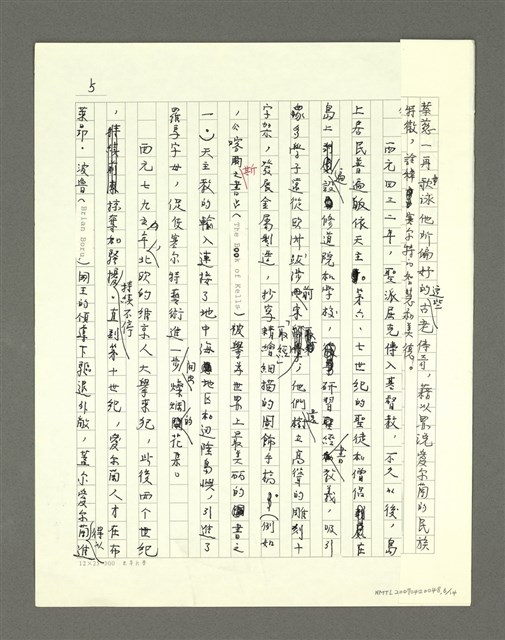 5
葉慈一再歌詠他所偏好的這些古老傳奇,藉以界說愛爾蘭的民族
特徵,詮釋塞爾特的智慧和美德。
西元四三二年,聖派屈克傳入基督教,不久以後,島
上居民普遍皈依天主。第六、七世紀的聖徒和僧侶在
島上遍設修道院和學校,研習聖經書教義,吸引
眾多學子遠從歐洲跋涉前來「取經」;他們樹立這高聳的雕刻十
字架,發展金屬製造,抄寫精繪細描的圖飾手稿(例如
,《喀爾斯之書》(The Book of Kells)被譽為世界上最美麗的書之
一。)天主教的輸入連接了地中海地區和邊陲島嶼,引進了
羅馬字母,促使塞爾特藝術進一步燦爛開出的花朵。
西元七九五年,北歐的維京人大舉來犯,此後兩個世紀
,持續不停掠奪和騷擾。直到第十世紀,愛爾蘭人才在布
萊昂·波魯(Brian Boru)國王的領導下驅退外敵,蓋爾愛爾蘭得以進
12×25=300
NMTL20090420048,5/14